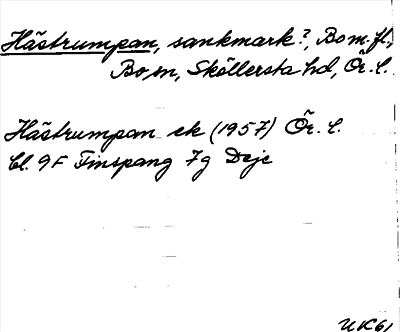 Hästrumpan, sankmark?, Bo m. fl.,
Bo sn, Sköllersta hd, Ör. l.
Hästrumpan ek (1957) Ör. l.
bl. 9F Finspång 7g Deje
UK61